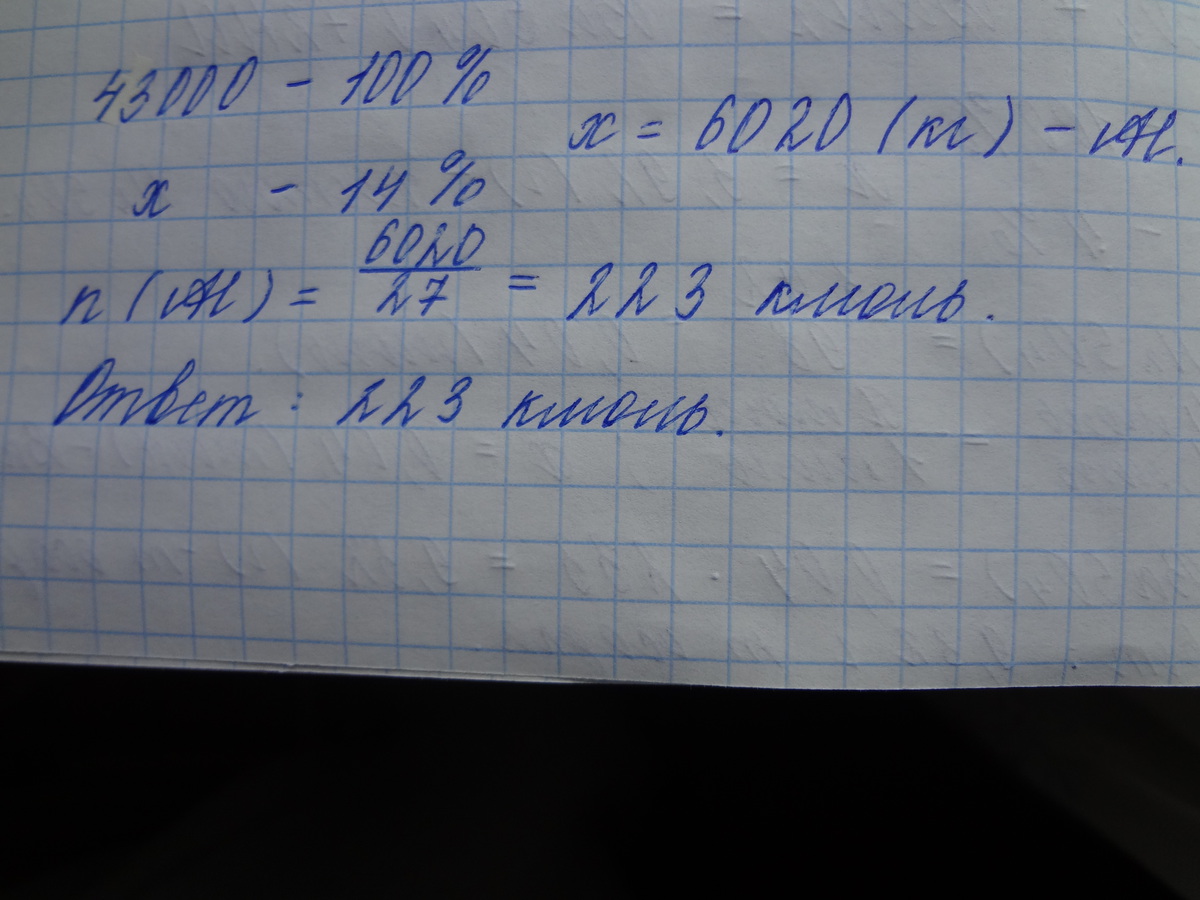 43000 - 100 %
x = 6020 (кг) - Al.
x - 14 %
n (Al) = 6020/27 = 223 кмоль.
Ответ: 223 кмоль.